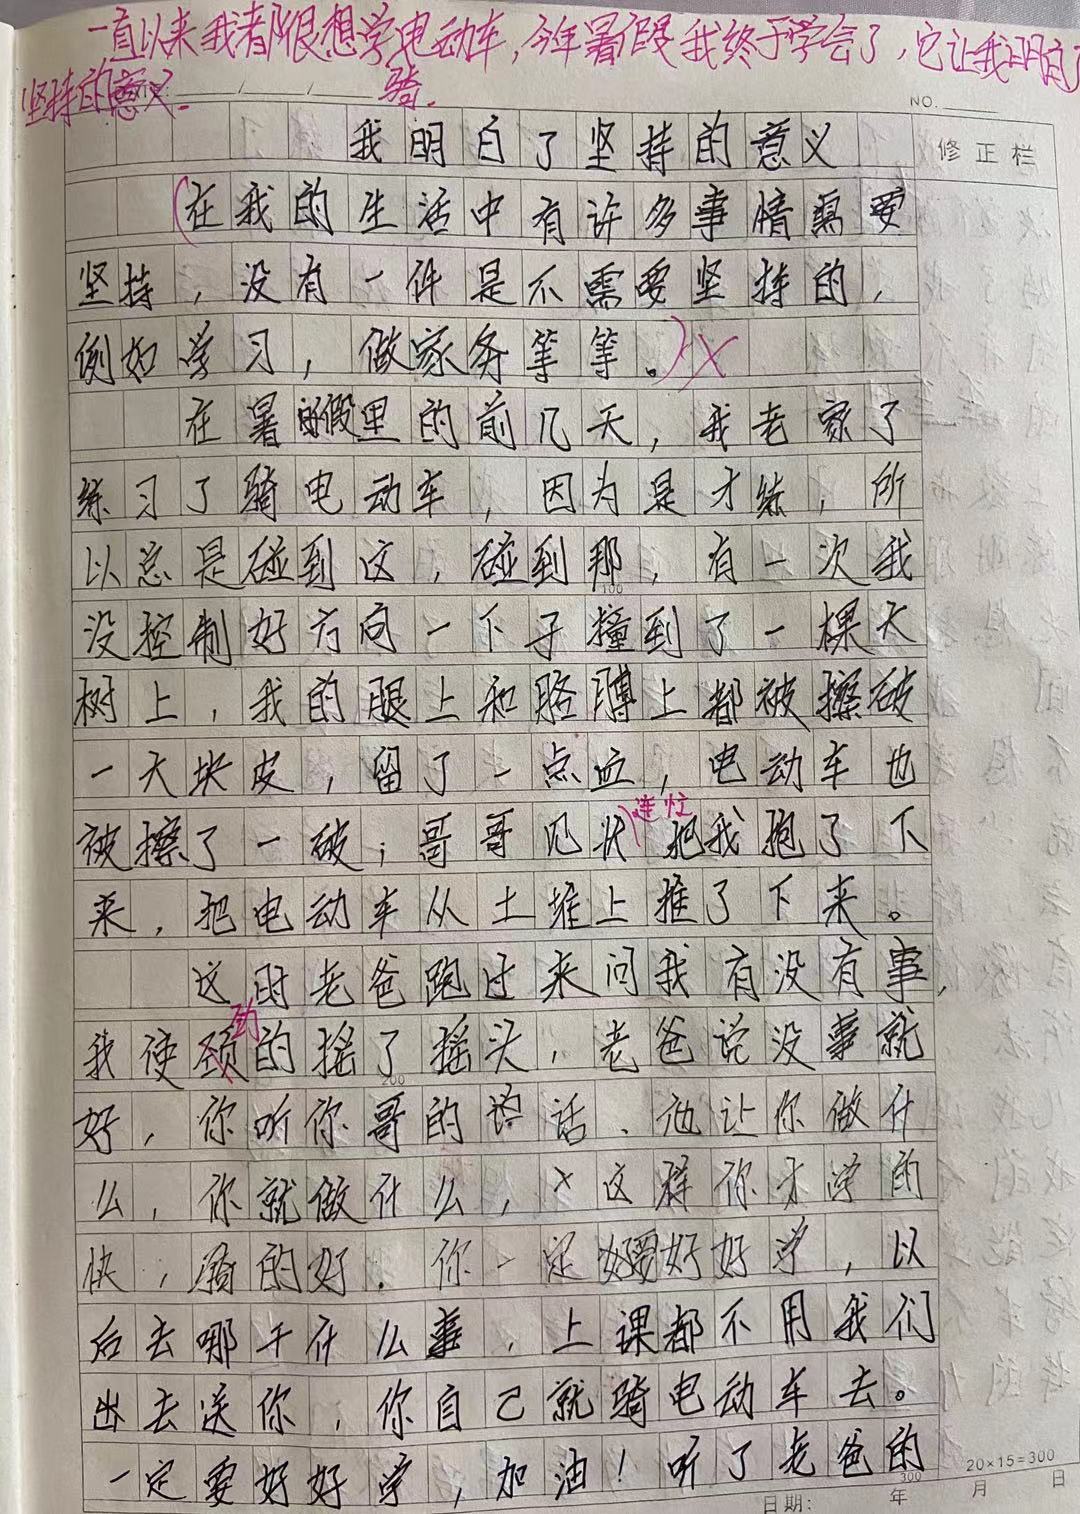 一直以来我都很想学电动车，今年暑假我终于学会了，它让我明白了
坚持的意义.
骑.
NO.
我明白了坚持的意义
修正栏
（在我的生活中有许多事情需要
坚持，没有一件是不需要坚持的，
例如学习，做家务等等。）X
在暑假里的前几天，我老家了
练习了骑电动车，因为是才练，所
以总是碰到这，碰到那，有一次我
100
没控制好方向一下子撞到了一棵大
树上，我的腿上和胳膊上都被擦破
一大块皮，留了一点血，电动车也
连忙
被擦了一破；哥哥见状把我抱了下
来，把电动车从土堆上推了下来。
这时老爸跑过来问我有没有事，
劲
我使颈的摇了摇头，老爸说没事就
200
好，你听你哥的话、他让你做什
么，你就做什么，这样你才学的
快，骑的好．你一定要好好学，以
后去哪干什么事，上课都不用我们
出去送你，你自己就骑电动车去。
一定要好好学，加油！听了老爸的
300
20×15=300
日期： 年 月 日